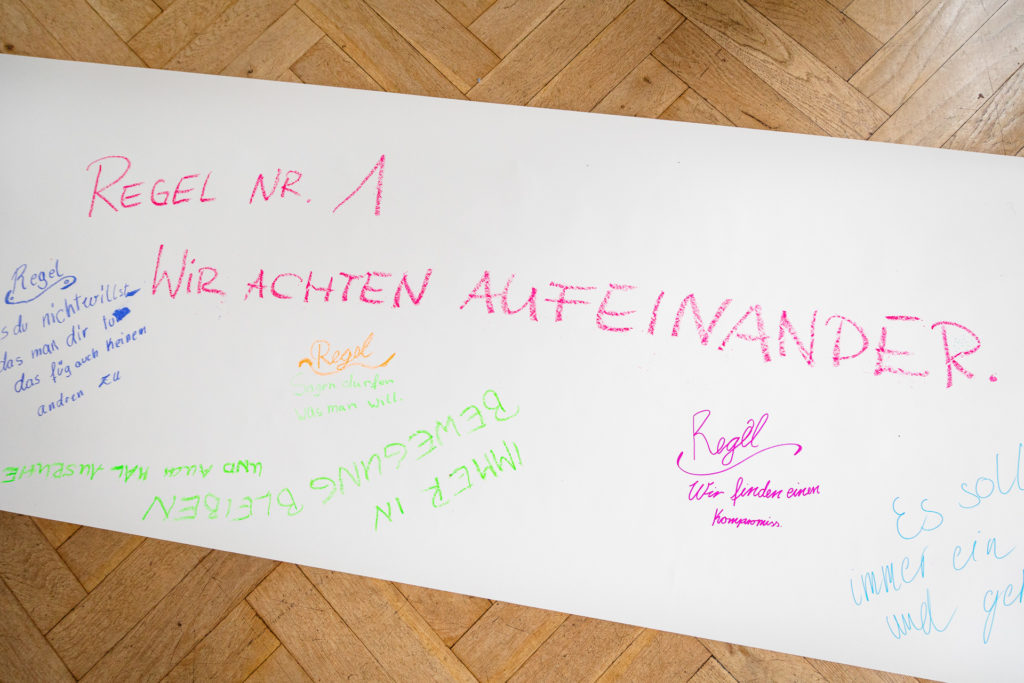 REGEL NR. 1
WIR ACHTEN AUFEINANDER.
Regel
s du nicht willst
das man dir tu
das füg auch keinem
andren zu
Regel
Sagen dürfen
was man will.
IMMER IN
BEWEGUNG BLEIBEN
UND AUCH MAL AUSRUHE
Regel
Wir finden einen
Kompromiss.
Es soll
immer ein
und ger